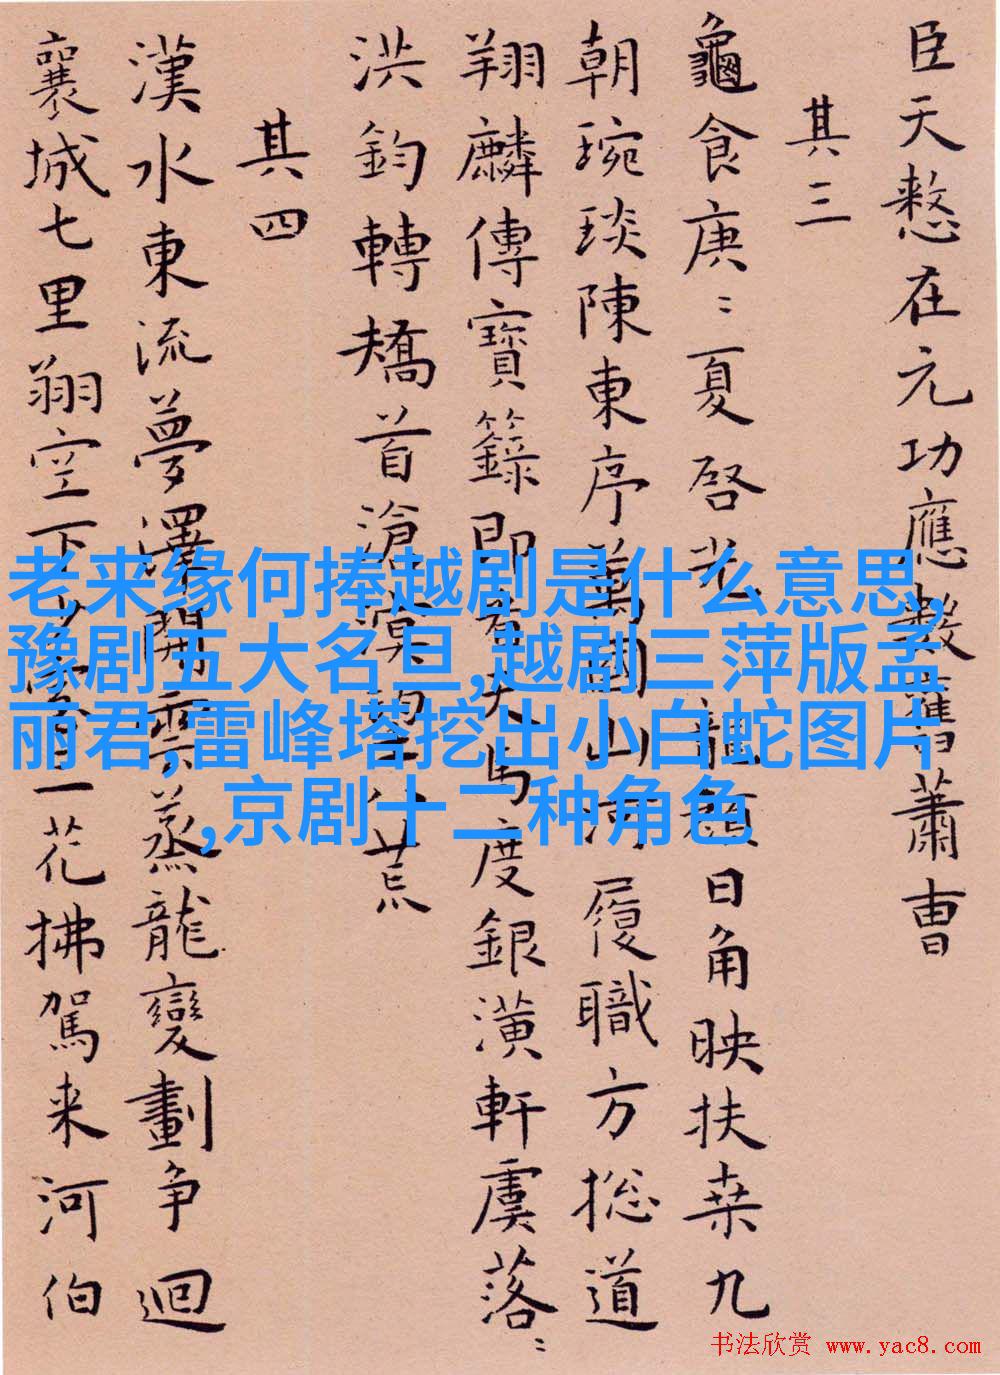 臣天憗在元功應數舊蕭曹
其三
龜食庚〻夏啓光龍顏日角映扶桒九
朝琬琰陳東序萬國山河履職方揔道
翔麟傳寶籙即看天馬度銀潢軒虞落〻
洪鈞轉矯首滄溟望八荒
其四
漢水東流夢澤開雲蒸龍變劃争迴
襄城七里翔空下一花拂駕来河伯
老来缘何捧越剧是什么意思,
豫剧五大名旦,越剧三萍版孟
丽君,雷峰塔挖出小白蛇图片
,京剧十二种角色
书法欣赏 www.yac8.com